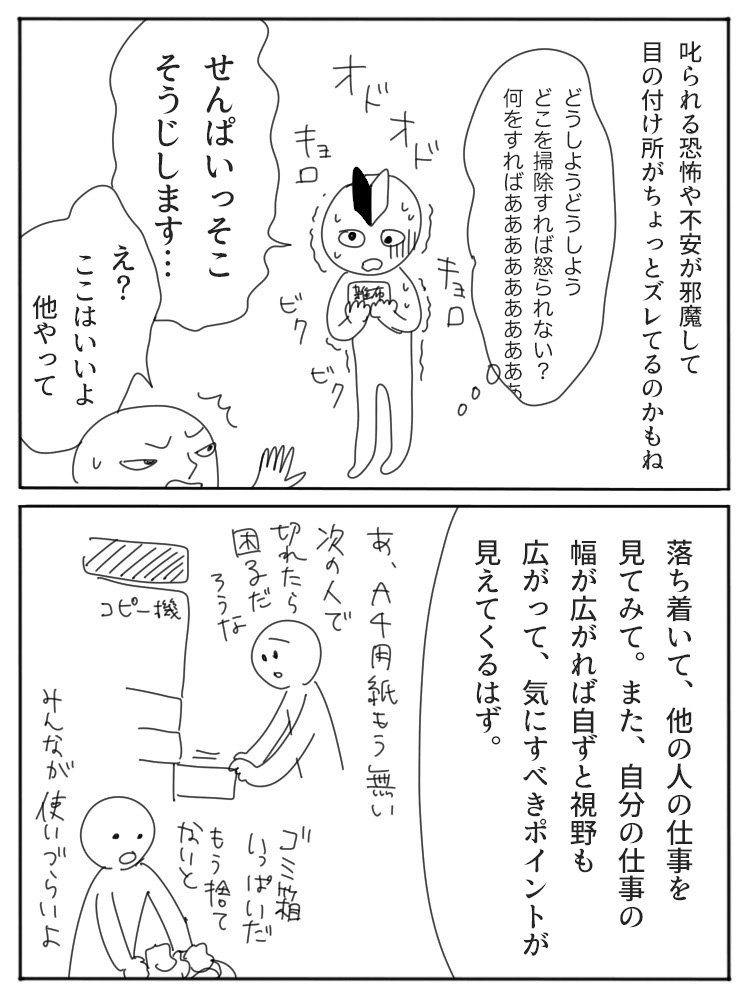 叱られる恐怖や不安が邪魔して
目の付け所がちょっとズレてるのかもね
どうしようどうしよう
どこを掃除すれば怒られない？
何をすればああああああああああ
オド
オド
キョロ
キョロ
雑布
ビク
ビク
せんぱいっそこ
そうじします…
え？
ここはいいよ
他やって
落ち着いて、他の人の仕事を
見てみて。また、自分の仕事の
幅が広がれば自ずと視野も
広がって、気にすべきポイントが
見えてくるはず。
あ、A4用紙もう無い
次の人で
切れたら
困るだ
ろうな
コピー機
ゴミ箱
いっぱいだ
もう捨て
ないと
みんなが使いづらいよ